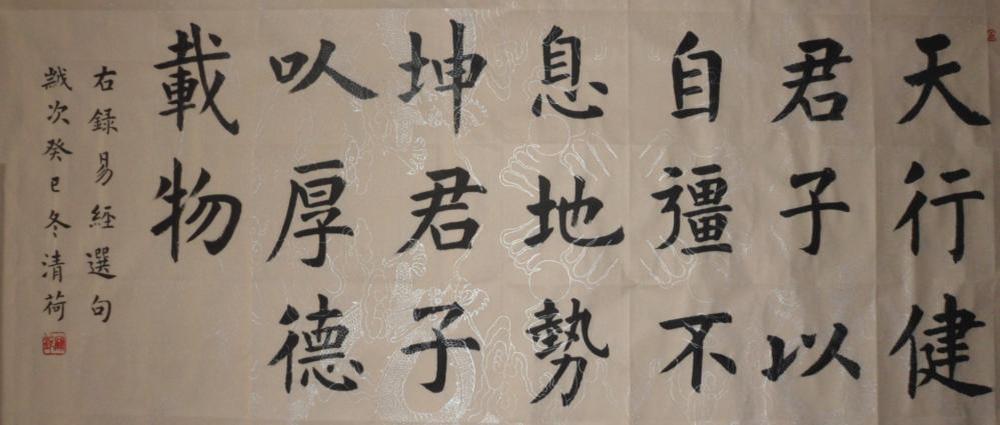 天行健
君子以
自彊不
息地勢
坤君子
㕥厚德
載物
右録易經選句
歲次癸巳冬清荷